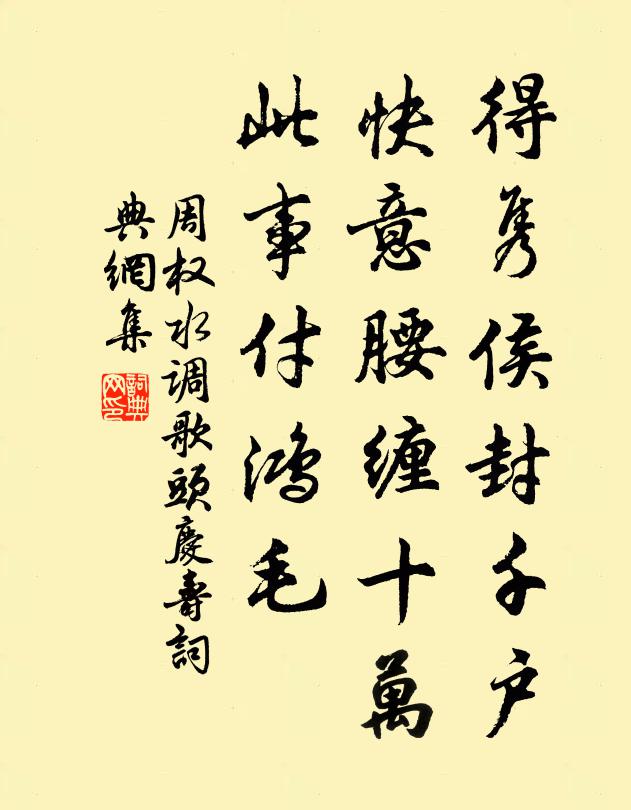 得隽侯封千户
快意腰缠十萬
此事付鸿毛
周权水调歌頭慶壽詞
典網集
詞典网印